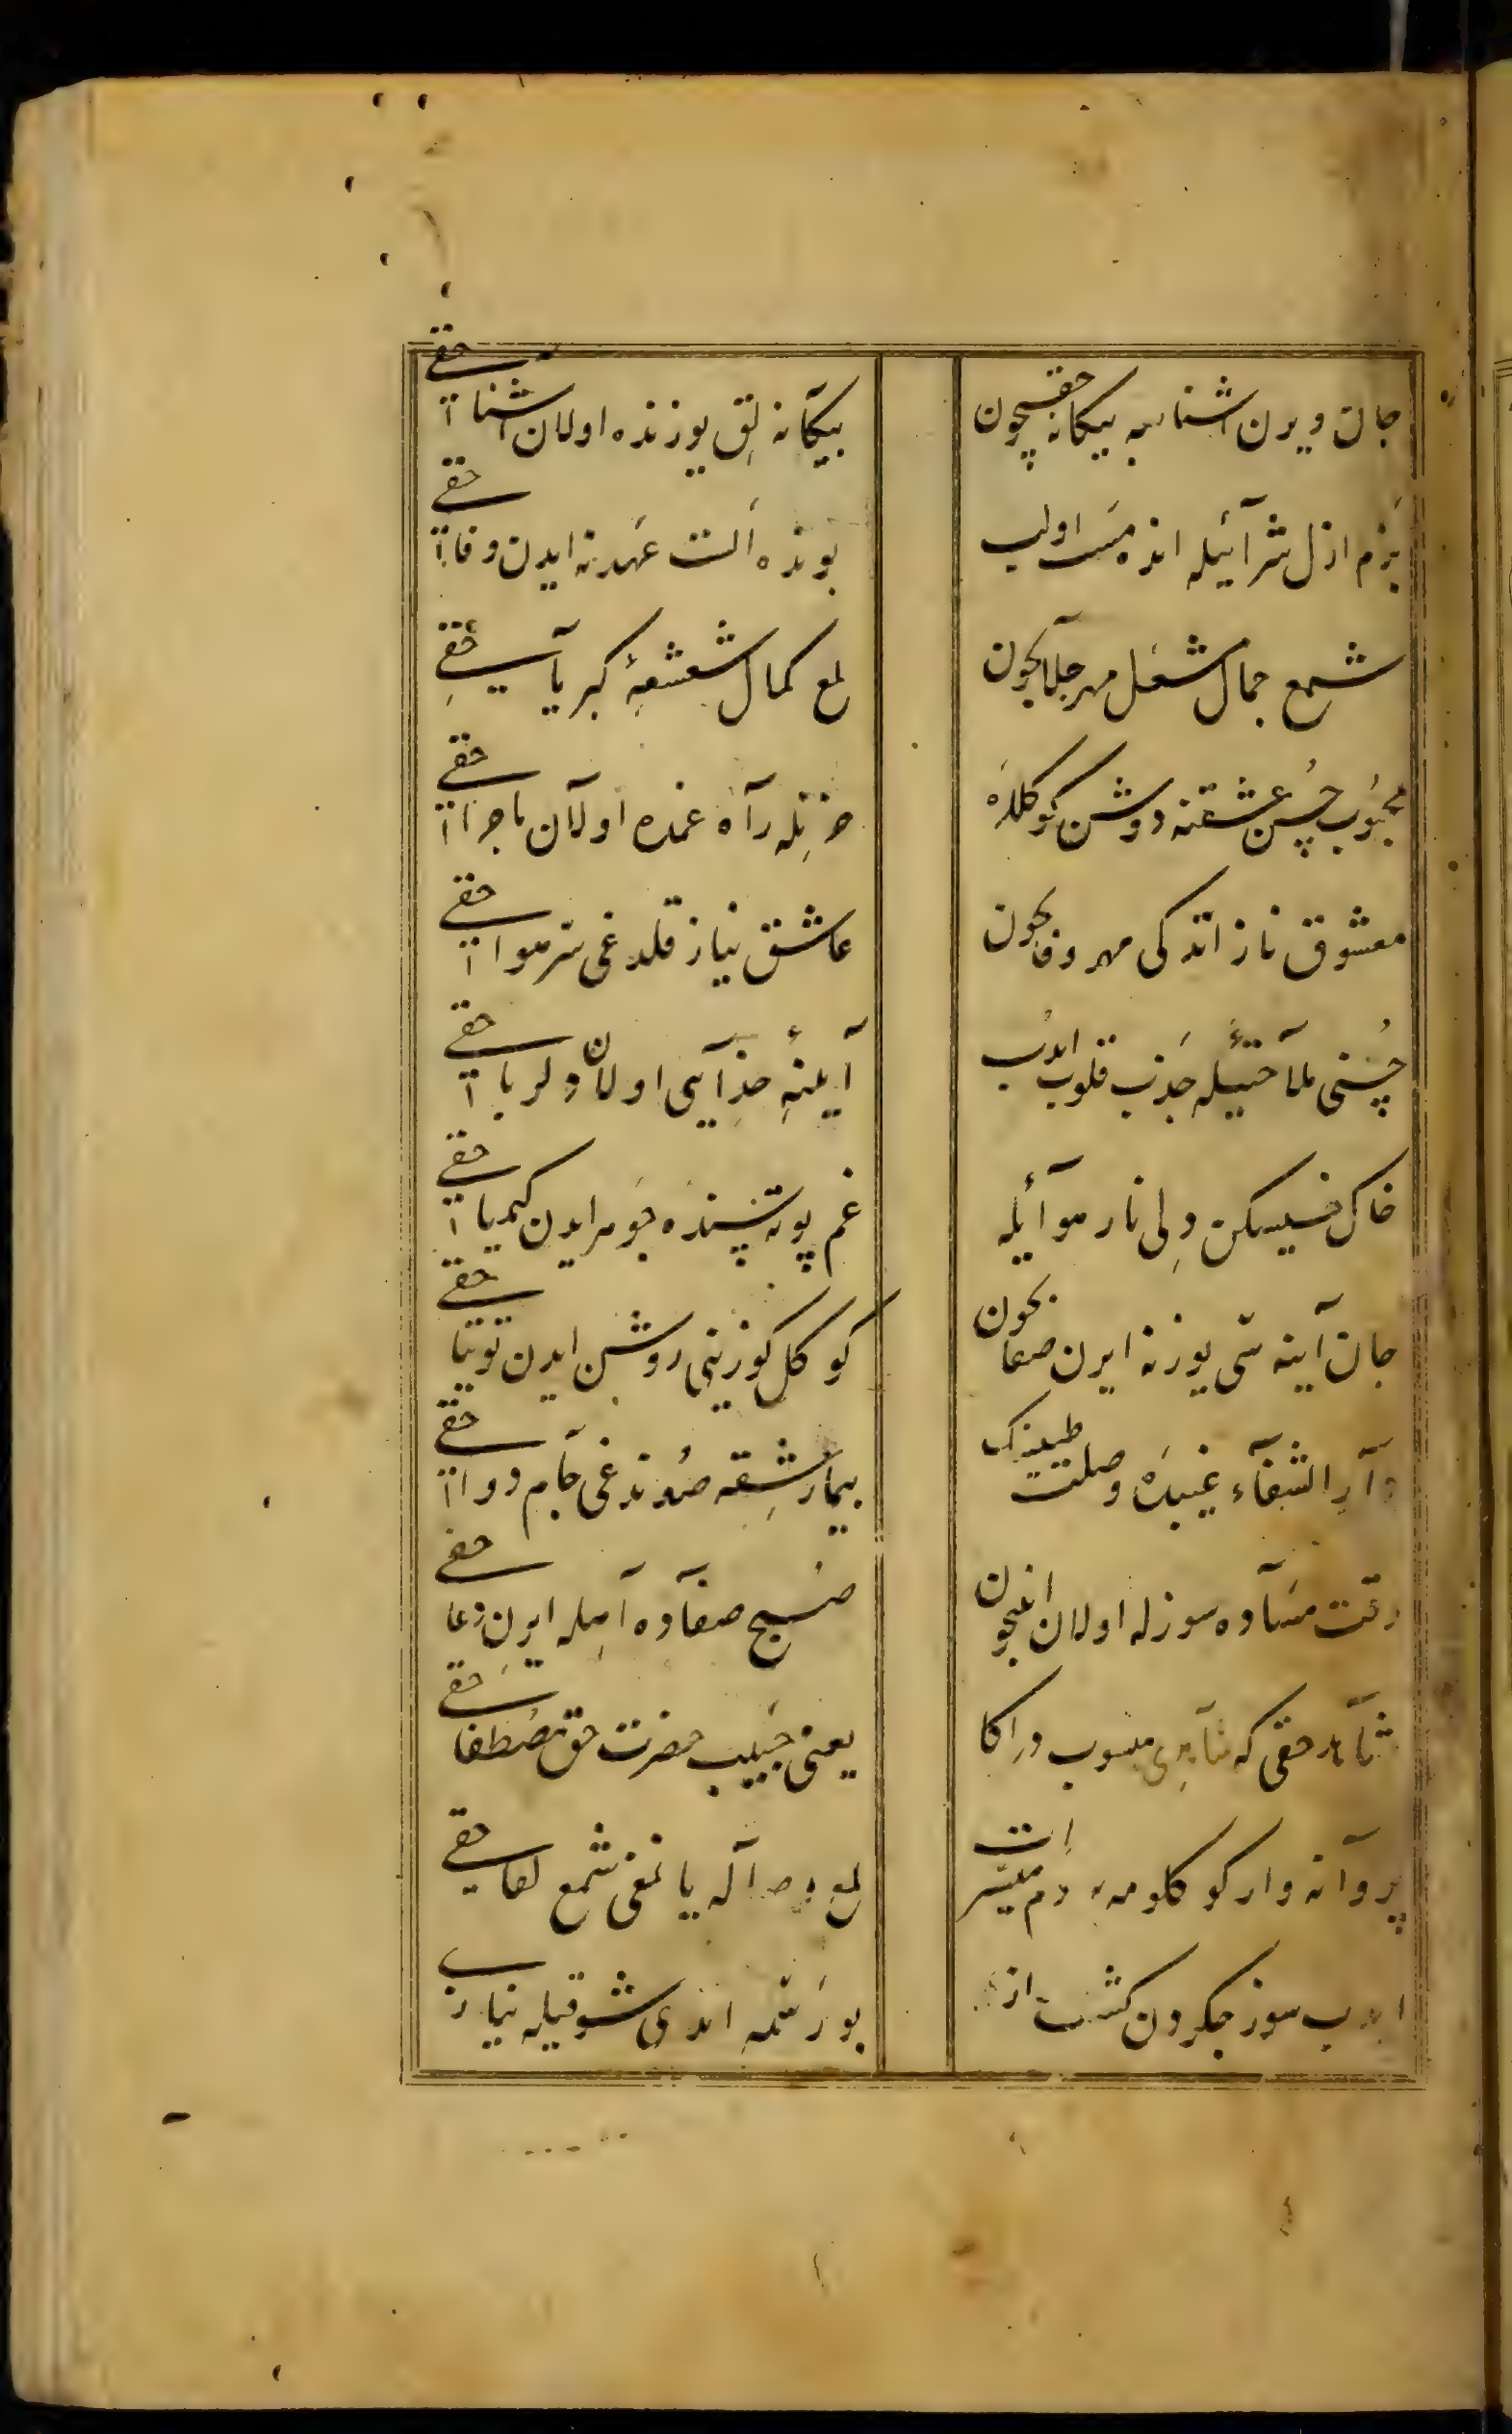 جان ویرن اشنایه بیکانه حقیچون
بیکانه لق یوزنده اولان اشنا حقی
بزم ازل شرابیله انده مست اولب
بونده الست عهدنه ایدن وفا حقی
شمع جمال شعل مهر جلا یچون
لمع کمال شعشعهٔ کبریا حقی
محبوب حسن عشقنه دوشن کوکللره
حزنله راه غمده اولان ماجرا حقی
معشوق ناز اتدکی مهر وفا یچون
عاشق نیاز قلدغی سر هوا حقی
حسنی ملاحتیله جذب قلوب ایدب
آیینهٔ اولان دلربا حقی
خاک دلی نار هوایله
غم پوته سنده جوهر ایدن کیمیا حقی
جان آینه سی یوزنه ایرن صفا یچون
کوکل کوزینی روشن ایدن توتیا حقی
دار الشفاء غیبده وصلت طبیبنک
بیمار عشقه صوندغی جام دوا حقی
وقت مساده سوزله اولان
صبح صفاده آهله ایرن دعا حقی
حقی که منسوب در اکا
یعنی حبیب حضرت حق مصطفا حقی
پروانه وار کوکلومه دم میسر ات
لمع یانمغی شمع لقا حقی
ایدب سوز جکردن
بو رسمه اندی شوقیله نیاز